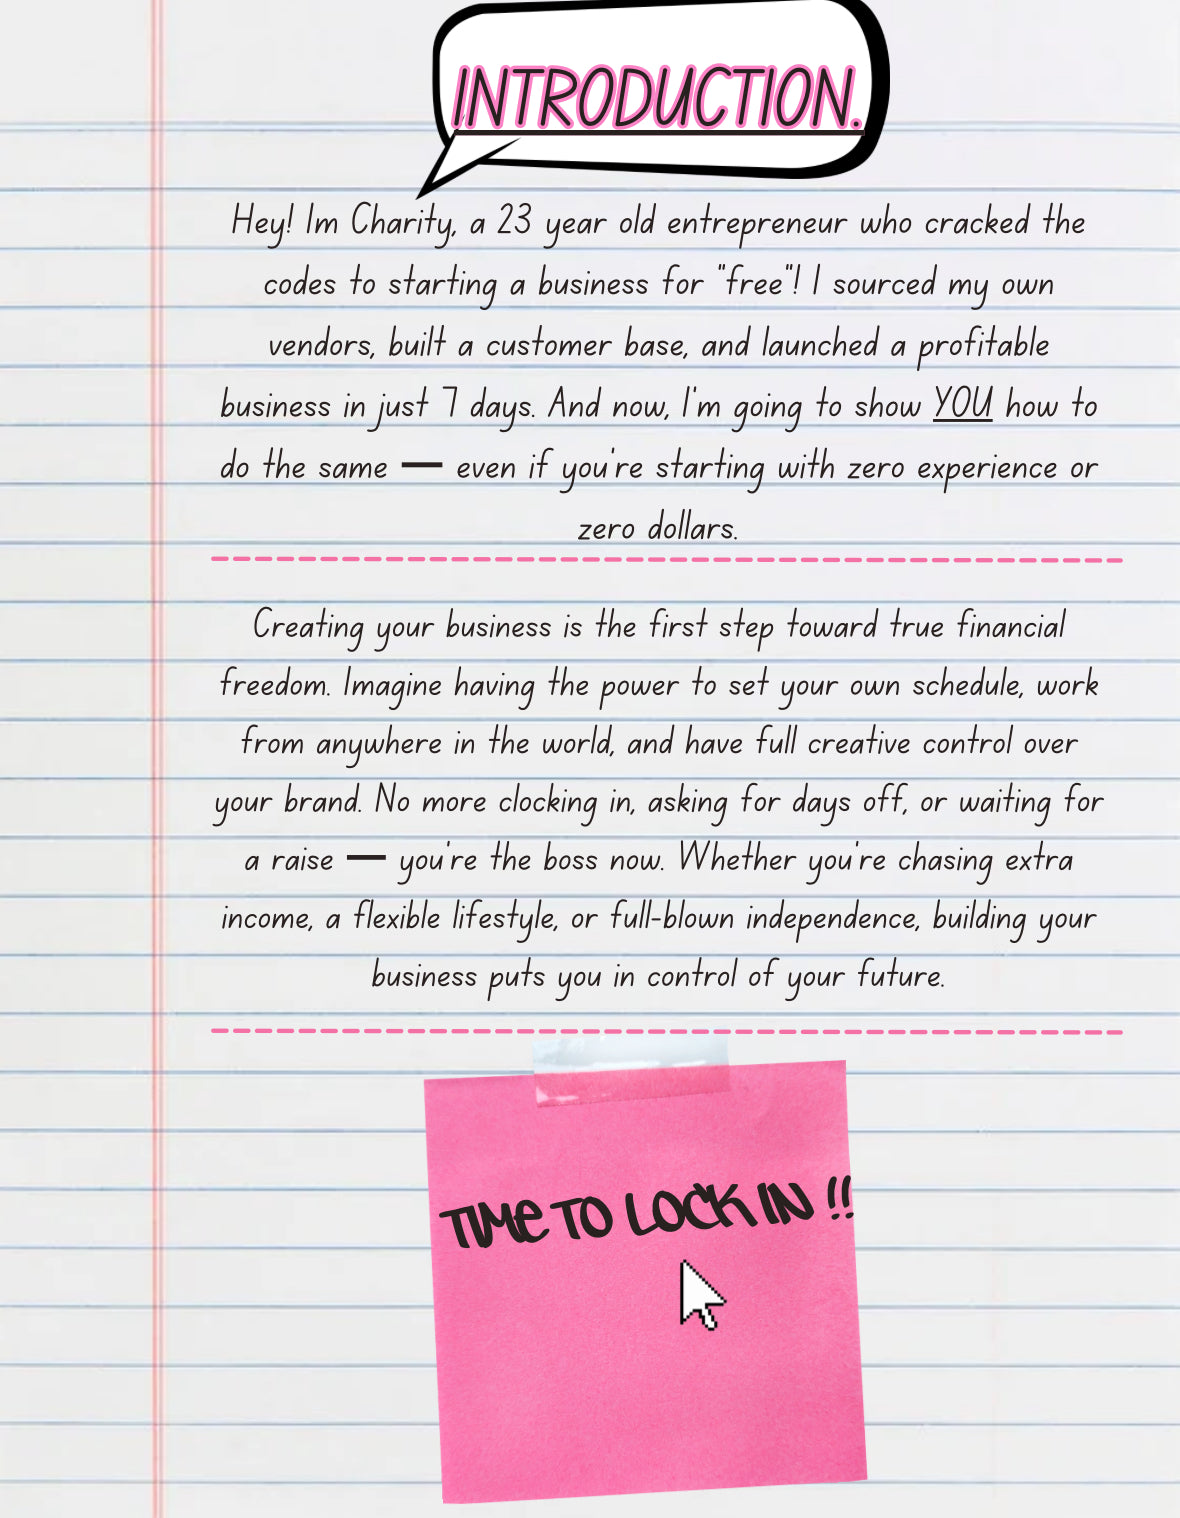 INTRODUCTION.
Hey! Im Charity, a 23 year old entrepreneur who cracked the
codes to starting a business for "free"! I sourced my own
vendors, built a customer base, and launched a profitable
business in just 7 days. And now, I'm going to show YOU how to
do the same — even if you're starting with zero experience or
zero dollars.
Creating your business is the first step toward true financial
freedom. Imagine having the power to set your own schedule, work
from anywhere in the world, and have full creative control over
your brand. No more clocking in, asking for days off, or waiting for
a raise — you're the boss now. Whether you're chasing extra
income, a flexible lifestyle, or full-blown independence, building your
business puts you in control of your future.
TIME TO LOCK IN !!